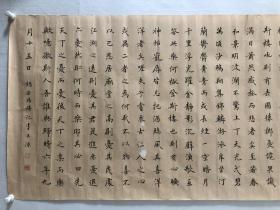 斯樓也則有去國懷鄉憂讒畏譏
滿目蕭然感極而悲者矣至若春
和景明波瀾不驚上下天光一碧
萬頃沙鷗翔集錦鱗游泳岸芷汀
蘭鬱鬱青青而或長煙一空皓月
千里浮光躍金靜影沉璧漁歌互
答此樂何極登斯樓也則有心曠
神怡寵辱皆忘把酒臨風其喜洋
洋者矣嗟夫予嘗求古仁人之心
或異二者之為何哉不以物喜不
以己悲居廟堂之高則憂其民處
江湖之遠則憂其君是進亦憂退
亦憂然則何時而樂耶其必曰先
天下之憂而憂後天下之樂而樂
歟噫微斯人吾誰與歸時六年九
月十五日